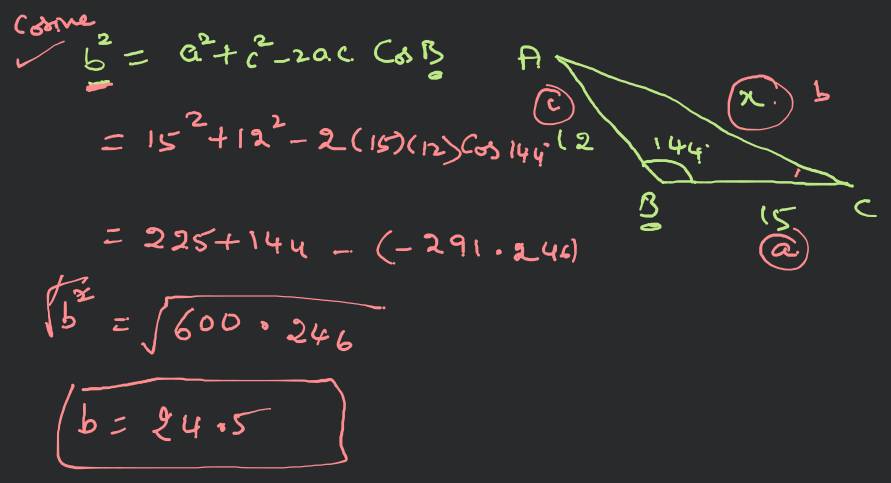 Cosine
✓ b² = a² + c² - 2ac Cos B
= 15² + 12² - 2(15)(12) Cos 144°
= 225 + 144 - (-291.246)
√b² = √600.246
b = 24.5
A
c
x
b
12
144°
B
15
C
a